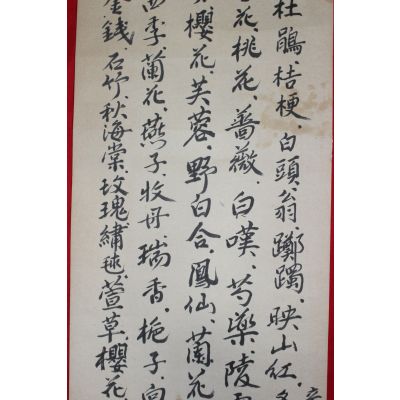 杜鵑、桔梗、白頭翁、躑躅、映山紅、
花、桃花、薔薇、白嘆、芍藥、陵
櫻花、芙蓉、野白合、鳳仙、蘭花
四季蘭花、燕子、牧丹、瑞香、梔子、向
金錢、石竹、秋海棠、玫瑰、繡毬、萱草、櫻花、